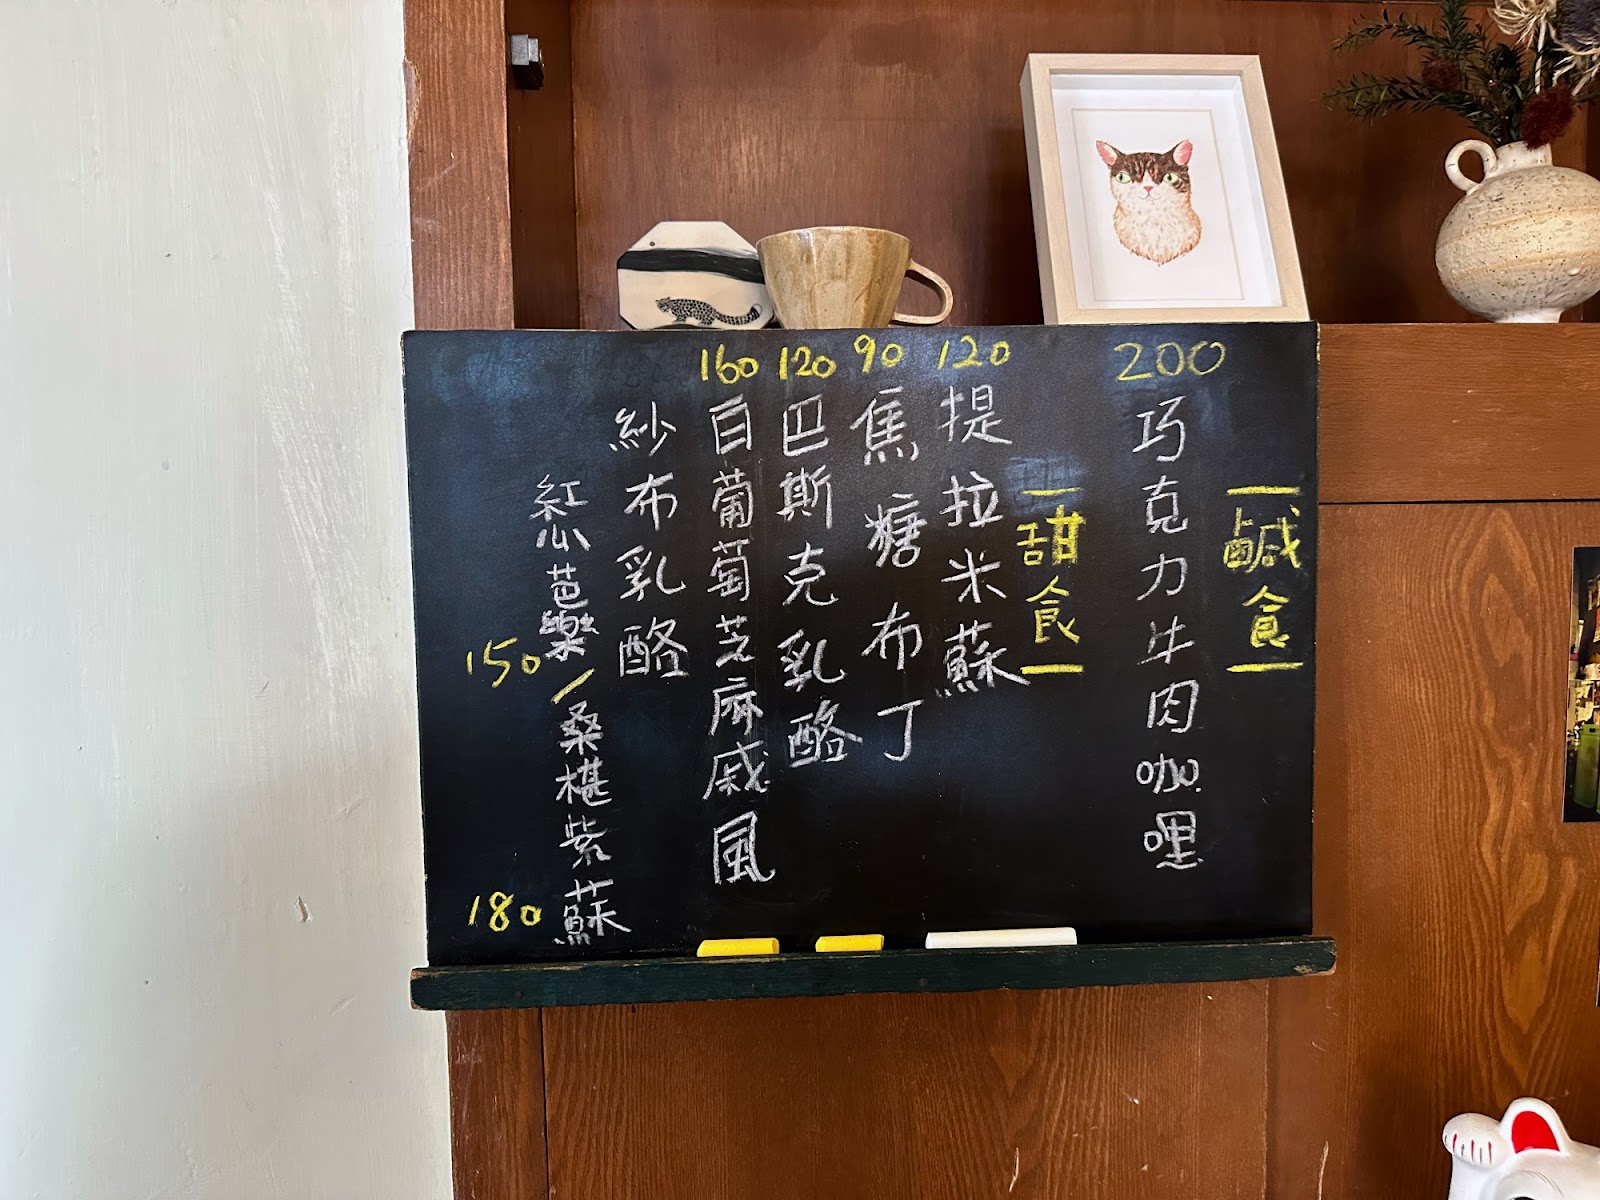 鹹食
200
巧克力牛肉咖哩
甜食
120
提拉米蘇
90
焦糖布丁
120
巴斯克乳酪
160
白葡萄芝麻戚風
紗布乳酪
紅心芭樂/桑椹紫蘇
150
180